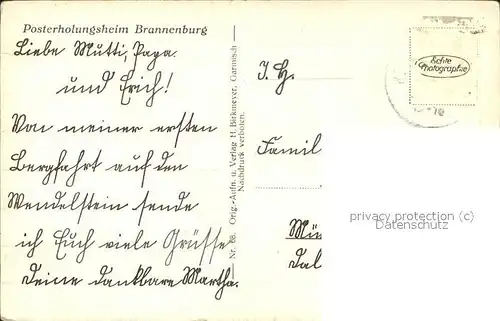 Posterholungsheim Brannenburg
Liebe Mutti, Papa
und Erich!
Von meiner ersten
Bergfahrt auf den
Wendelstein sende
ich Euch viele Grüsse
Deine dankbare Martha.
Nr. 68. Orig.-Aufn. u. Verlag H. Birkmeyer, Garmisch
Nachdruck verboten.
Echte
Photographie
Famil
Mün
privacy protection (c)
Datenschutz